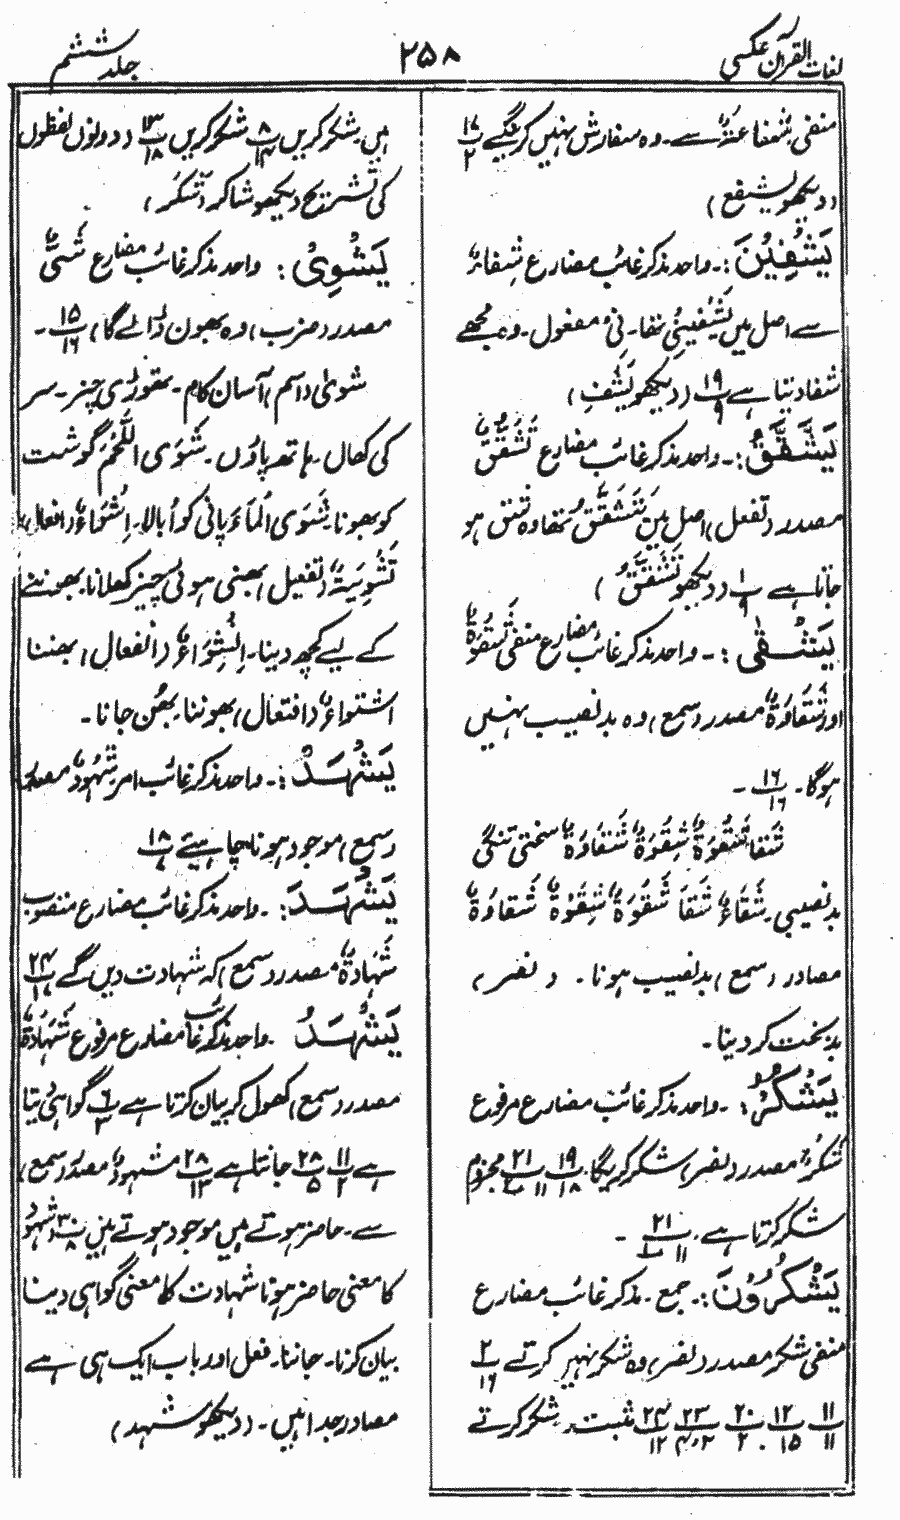 لغات القرآن عکسی
۲۵۸
جلد ششم
منفی شفاعۃٌ سے۔ وہ سفارش نہیں کریں گے ۱۷/۲
(دیکھو یشفع)
یَشْفِیْنِ :۔ واحد مذکر غائب مضارع شِفاءٌ
سے اصل میں یَشْفِیْنِیْ تھا۔ نی مفعول۔ وہ مجھے
شفا دیتا ہے ۱۹/۹ (دیکھو یَشْفِ)
یَشَّقَّقُ :۔ واحد مذکر غائب مضارع تَشَقُّقٌ
مصدر (تفعل) اصل میں یَتَشَقَّقُ تھا وہ شق ہو
جاتا ہے ۱/۹ (دیکھو تَشَقَّقُ)
یَشْقٰی :۔ واحد مذکر غائب مضارع منفی شَقْوَۃٌ
اور شَقَاوَۃٌ مصدر (سمع) وہ بدنصیب نہیں
ہوگا۔ ۱۶/۱۶ ۔
شَقَا شَقْوَۃٌ شِقْوَۃٌ شَقَاوَۃٌ سختی تنگی
بدنصیبی۔ شَقَاءٌ شَقًا شَقْوَۃٌ شِقْوَۃٌ شقاوَۃٌ
مصادر (سمع) بدنصیب ہونا۔ (نصر)
بدبخت کر دینا۔
یَشْکُرُ :۔ واحد مذکر غائب مضارع مرفوع
شُکْرٌ مصدر (نصر) شکر کریگا ۱۹/۱۸ ۲۱/۱۱ مجزوم
شکر کرتا ہے۔ ۲۱/۱۱ ۔
یَشْکُرُوْنَ :۔ جمع۔ مذکر غائب مضارع
منفی شکر مصدر (نصر) وہ شکر نہیں کرتے ۲/۱۶
۱۱/۱۱ ۱۲/۱۵ ۲۰/۲ ۲۳/۲،۴ ۲۴/۱۲ مثبت۔ شکر کرتے
ہیں۔ شکر کریں ۸/۱۴ شکر کریں ۱۳/۱۸ (دونوں لفظوں
کی تشریح دیکھو شاکر، تَشْکُر)
یَشْوِیْ :۔ واحد مذکر غائب مضارع شَیٌّ
مصدر (ضرب) وہ بھون ڈالے گا) ۱۵/۱۶ ۔
شویٰ (اسم) آسان کام۔ تھوڑی چیز۔ سر
کی کھال۔ ہاتھ پاؤں۔ شَوَی اللَّحْمَ گوشت
کو بھونا۔ شَوَی الْمَاءَ پانی کو اُبالا۔ اِشْوَاءٌ (افعال)
تَشْوِیَۃٌ (تفعیل) بھنی ہوئی چیز کھلانا۔ بھوننے
کے لیے کچھ دینا۔ اِنْشِوَاءٌ (انفعال) بھننا
اشتواءٌ (افتعال) بھوننا۔ بھُن جانا۔
یَشْھَدْ :۔ واحد مذکر غائب امر شُھُودٌ مصدر
(سمع) موجود ہونا چاہیئے ۱۸/۷
یَشْھَدَ :۔ واحد مذکر غائب مضارع منصوب
شَھَادَۃٌ مصدر (سمع) کہ شہادت دیں گے ۲۴/۱۷
یَشْھَدُ ۔ واحد مذکر غائب مضارع مرفوع شَھَادَۃٌ
مصدر (سمع) کھول کر بیان کرتا ہے ۶/۳ گواہی دیتا
ہے ۱۱/۲ ۲۸/۵ جانتا ہے ۲۸/۱۳ مشہودٌ مصدر (سمع)
سے۔ حاضر ہوتے ہیں موجود ہوتے ہیں ۳۰/۸ شہود
کا معنی حاضر ہونا شہادت کا معنی گواہی دینا
بیان کرنا۔ جاننا۔ فعل اور باب ایک ہی ہے
مصادر جدا ہیں۔ (دیکھو شہد)